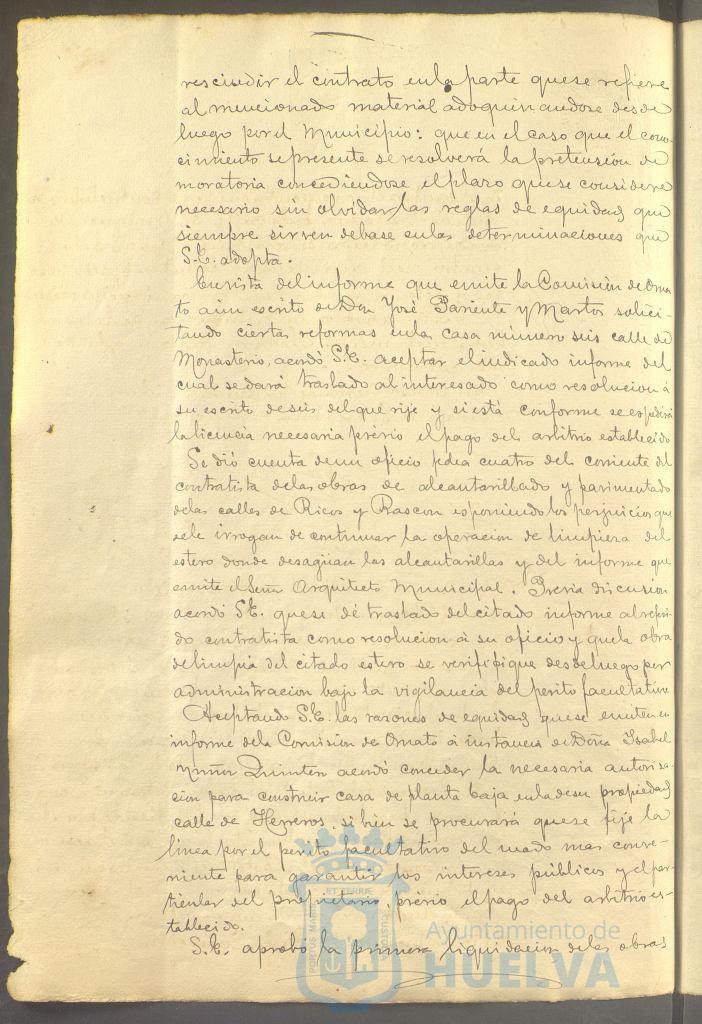 rescindir el contrato en la parte que se refiere
al mencionado material adoquinandose desde
luego por el Municipio: que en el caso que el cono-
cimiento se presente se resolverá la pretension de
moratoria concediendose el plazo que se considere
necesario sin olvidar las reglas de equidad que
siempre sirven de base en las determinaciones que
S.E. adopta.
En vista del informe que emite la Comisión de Orna
to a un escrito de Don José Pariente y Martos solici-
tando ciertas reformas en la casa número seis calle de
Monasterio, acordó S.E. aceptar el indicado informe del
cual se dará traslado al interesado como resolucion á
su escrito de seis del que rije y si está conforme se espedirá
la licencia necesaria prévio el pago del arbitrio establecido
Se dió cuenta de un oficio fecha cuatro del corriente del
contratista de las obras de alcantarillado y pavimentado
de las calles de Ricos y Rascon esponiendo los perjuicios que
se le irrogan de continuar la operacion de limpieza del
estero donde desagüan las alcantarillas y del informe que
emite el Señor Arquitecto Municipal. Previa discusion
acordó S.E. que se dé traslado del citado informe al referi-
do contratista como resolucion á su oficio y que la obra
de limpia del citado estero se verifique desde luego por
administracion bajo la vigilancia del perito facultativo
Aceptando S.E. las razones de equidad que se emiten en
informe de la Comisión de Ornato á instancia de Doña Isabel
Muñoz Quintero acordó conceder la necesaria autoriza-
cion para construir casa de planta baja en la de su propiedad
calle de Herreros, si bien se procurará que se fije la
línea por el perito facultativo del modo mas conve-
niente para garantir los intereses públicos y el par-
ticular del propietario, prévio el pago del arbitrio es-
tablecido.
S.E. aprobó la primera liquidacion de las obras
PORTUS MARIS
ET TERRE
CUSTODIA
Ayuntamiento de
HUELVA